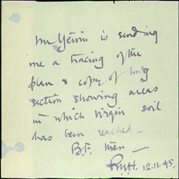 Mr Yeivin is sending
me a tracing of the
plan & copy of
section showing areas
in which virgin soil
has been reached
B.F. then
12.11.45